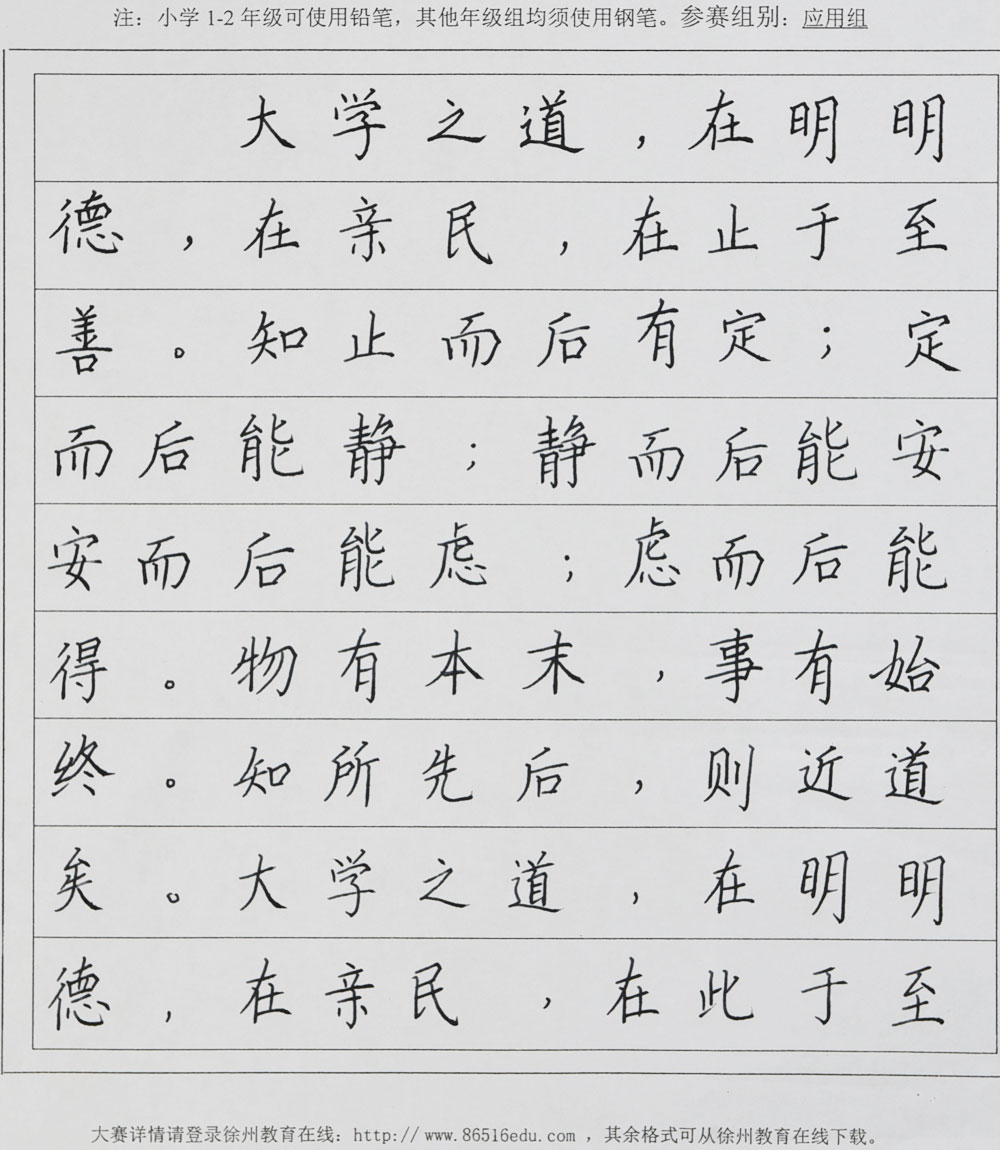 注：小学 1-2 年级可使用铅笔，其他年级组均须使用钢笔。参赛组别：应用组
大学之道，在明明
德，在亲民，在止于至
善。知止而后有定；定
而后能静；静而后能安
安而后能虑；虑而后能
得。物有本末，事有始
终。知所先后，则近道
矣。大学之道，在明明
德，在亲民，在此于至
大赛详情请登录徐州教育在线：http://www.86516edu.com，其余格式可从徐州教育在线下载。